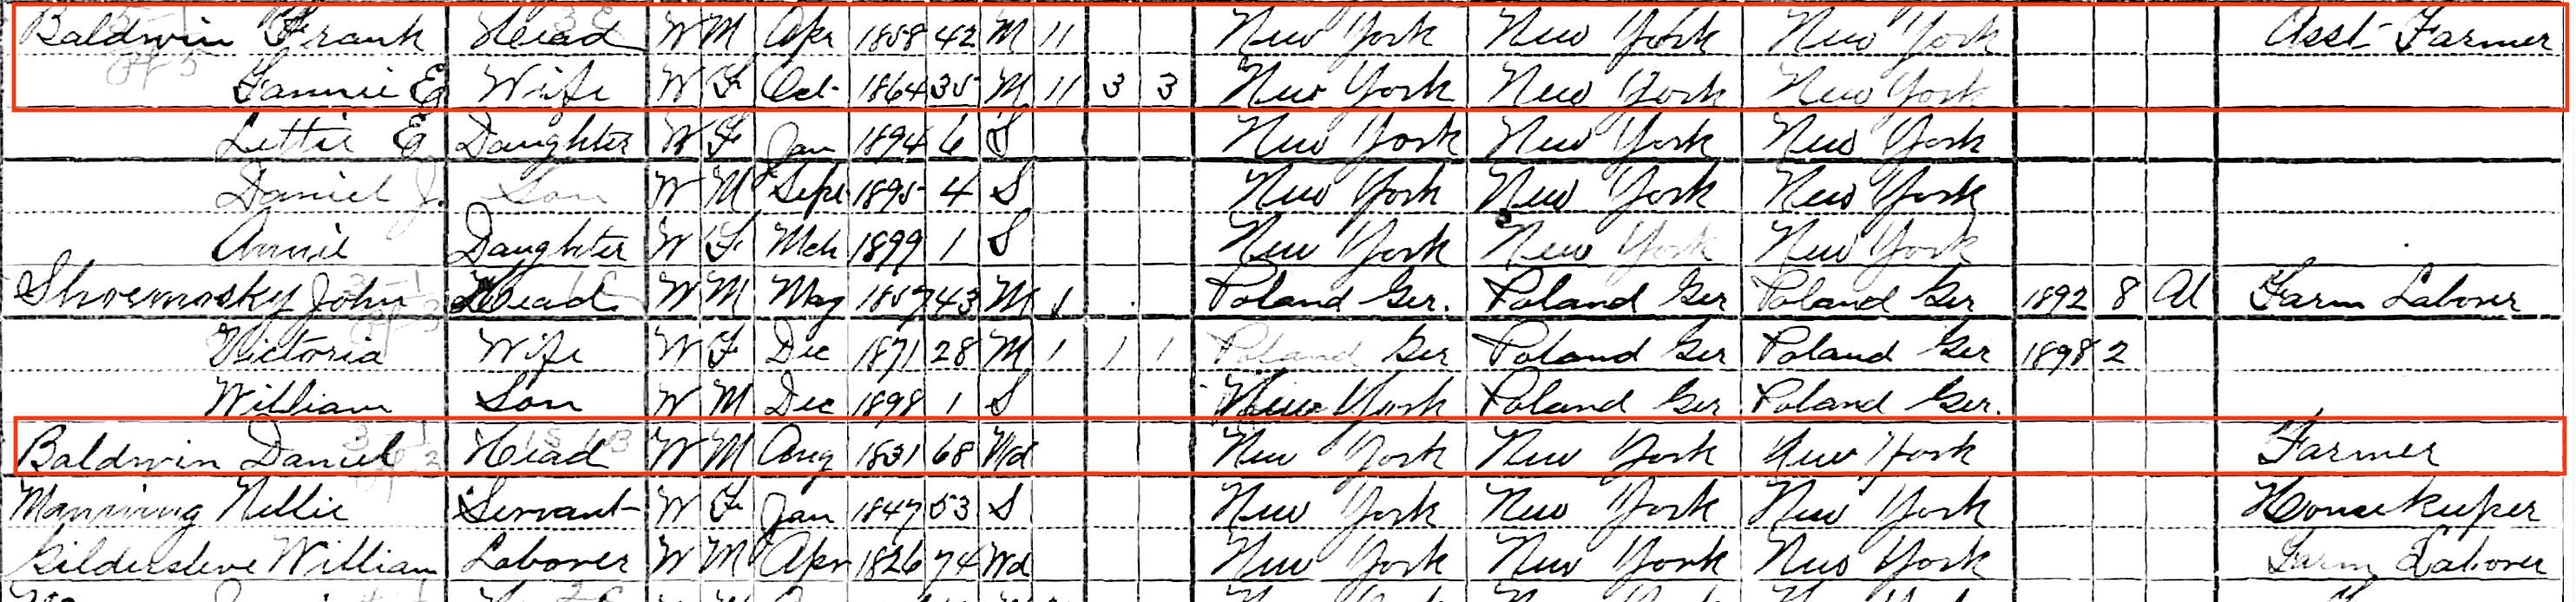 Baldwin Frank Head W M Apr 1858 42 M 11 New York New York New York Asst Farmer
Fannie E Wife W F Oct 1864 35 M 11 3 3 New York New York New York
Lettie E Daughter W F Jan 1894 6 S New York New York New York
Daniel J. Son W M Sept 1895 4 S New York New York New York
Annie Daughter W F Mch 1899 1 S New York New York New York
John Head W M May 1857 43 M 1 Poland Ger. Poland Ger Poland Ger 1892 8 Al Farm Laborer
Victoria Wife W F Dec 1871 28 M 1 1 1 Poland Ger Poland Ger Poland Ger 1898 2
William Son W M Dec 1898 1 S New York Poland Ger Poland Ger.
Baldwin Daniel Head W M Aug 1831 68 Wd New York New York New York Farmer
Manning Nellie Servant W F Jan 1847 53 S New York New York New York Housekeeper
Gildersleve William Laborer W M Apr 1826 74 Wd New York New York New York Farm Laborer